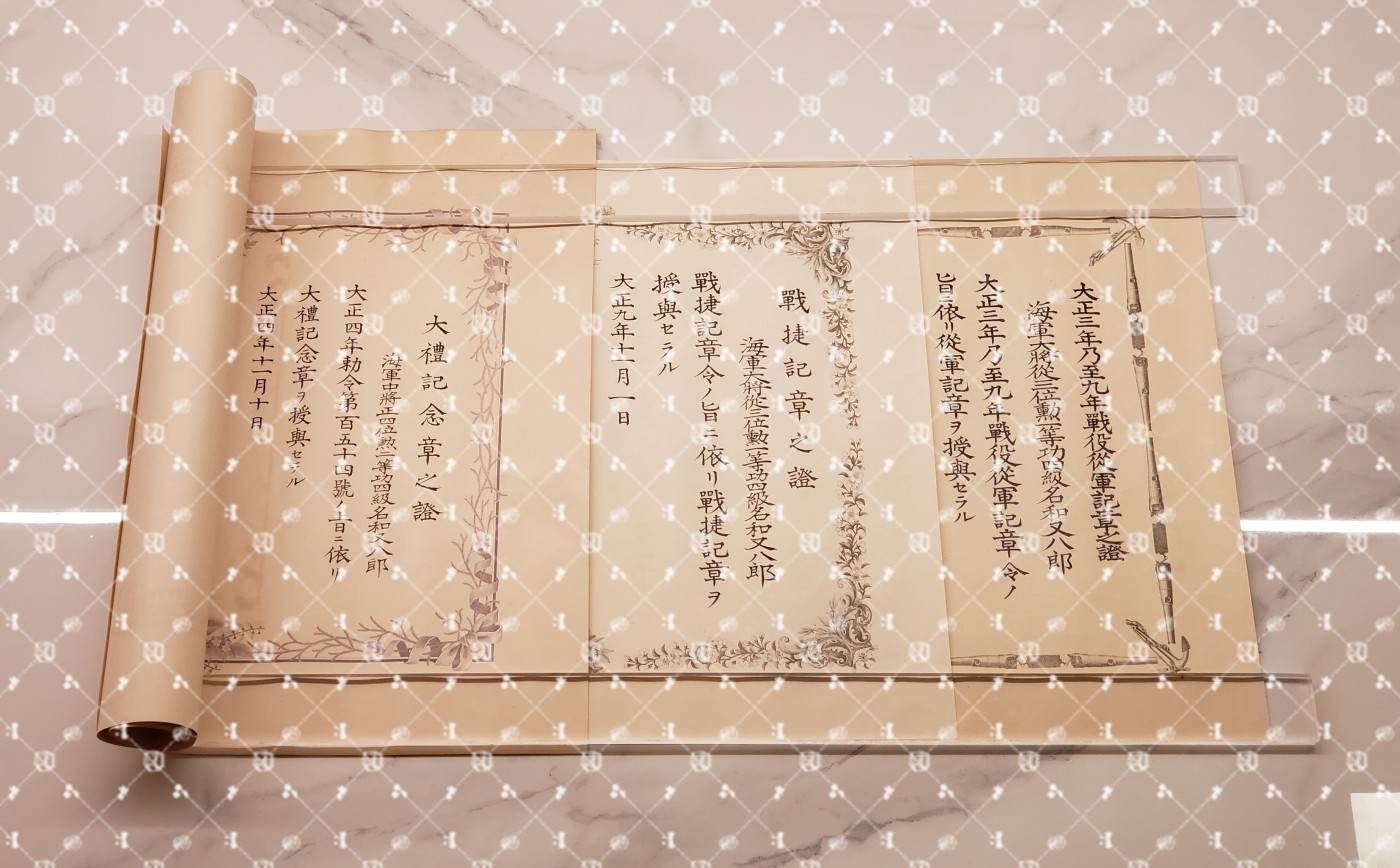 大正三年乃至九年戰役從軍記章之證
海軍大將從三位勲一等功四級名和又八郎
大正三年乃至九年戰役從軍記章令ノ
旨ニ依リ從軍記章ヲ授與セラル
戰捷記章之證
海軍大將從三位勲一等功四級名和又八郎
戰捷記章令ノ旨ニ依リ戰捷記章ヲ
授與セラル
大正九年十一月一日
大禮記念章之證
海軍中將正四位勲二等功四級名和又八郎
大正四年勅令第百五十四號ノ旨ニ依リ
大禮記念章ヲ授與セラル
大正四年十一月十日